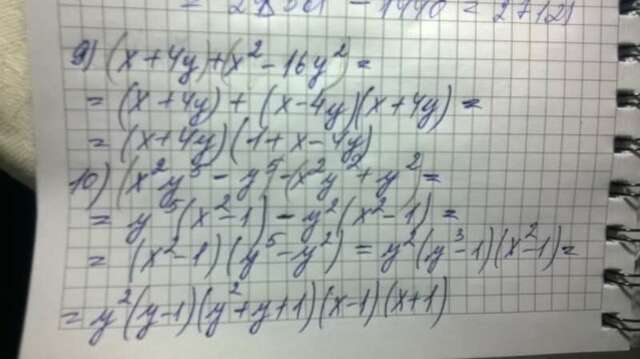 = 2 - 1440 = 27121
9) (x+4y)+(x²-16y²)=
= (x+4y) + (x-4y)(x+4y) =
= (x+4y)(1+x-4y)
10) (x²y⁵ - y⁵)-(x²y² + y²)=
= y⁵(x²-1) - y²(x²-1) =
= (x²-1)(y⁵-y²) = y²(y³-1)(x²-1)=
= y²(y-1)(y²+y+1)(x-1)(x+1)